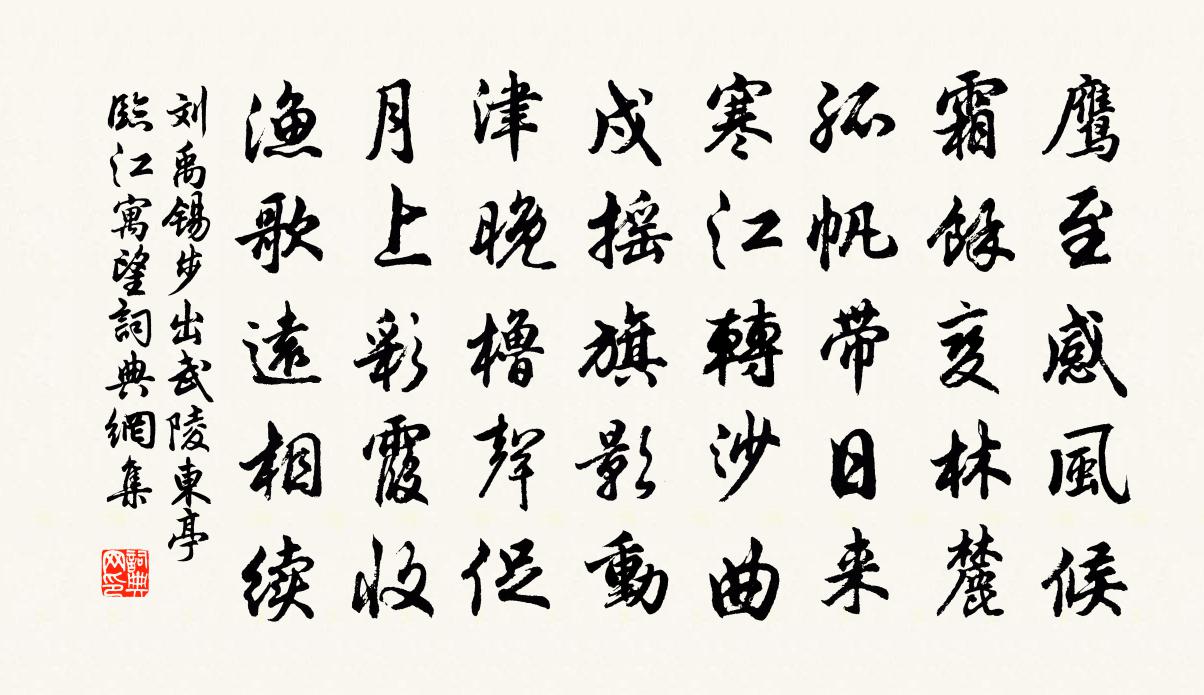 鹰至感风候
霜馀变林麓
孤帆带日来
寒江轉沙曲
戍摇旗影動
津晚櫓聲促
月上彩霞收
渔歌遠相续
刘禹锡步出武陵東亭
臨江寓望詞典網集
詞典
网印